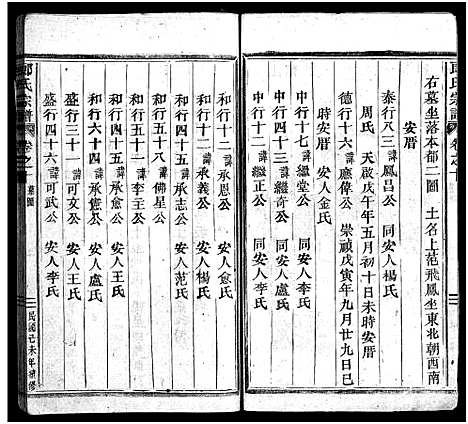 氏宗譜 卷之十
右墓坐落本都二圖 土名上范飛鳳坐東北朝西南
安厝
泰行八三諱鳳昌公 同安人楊氏
周氏 天啟戊午年五月初十日未時安厝
德行十六諱應偉公 崇禎戊寅年九月廿九日巳
時安厝 安人金氏
中行十七諱繼堂公 同安人盧氏
中行四十三諱繼奇公 同安人盧氏
中行四十二諱繼正公 同安人李氏
和行十二諱承恩公 安人俞氏
和行十二諱承義公 安人楊氏
和行五十八諱承志公 安人范氏
和行五十八諱佛星公
和行五十一諱李主公
和行六十四諱承憲公 安人王氏
盛行三十一諱可文公 安人盧氏
盛行四十六諱可武公 安人王氏
安人李氏
氏宗譜 卷之 墓圖
民國己未年續修